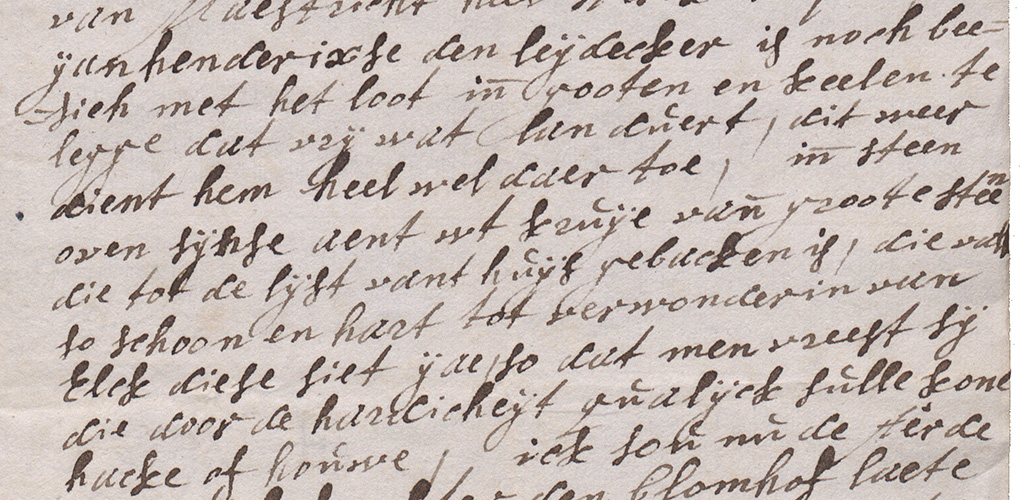 van Maestricht
yan henderixse den leydecker is noch bee=
sich met het loot in gooten en keelen te
legge dat vrij wat lan duert, dit weer
dient hem heel wel daer toe, in steen
oven sijnse aent wt kruye van groote steen
die tot de lijst vant huys gebacken is, die vall
so schoon en hart tot verwonderin van
Elck diese siet yae so dat men vreest sy
die door de hardicheyt qualyck sulle kone
hacke of houwe, ick sou nu de
den blomhof laete